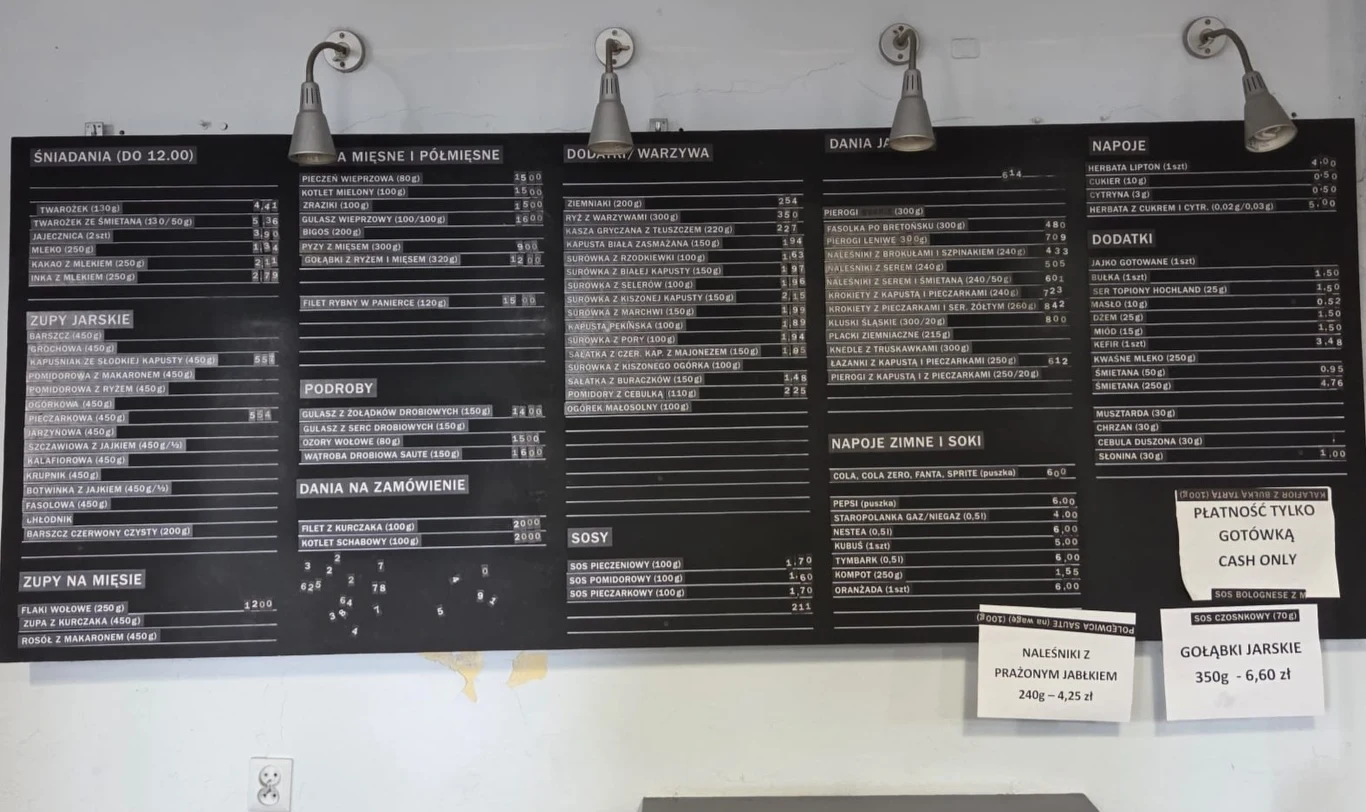 ŚNIADANIA (DO 12.00)
TWAROŻEK (130g) 4,41
TWAROŻEK ZE ŚMIETANĄ (130/50g) 5,36
JAJECZNICA (2szt) 3,90
MLEKO (250g) 1,34
KAKAO Z MLEKIEM (250g) 2,11
INKA Z MLEKIEM (250g) 2,79
ZUPY JARSKIE
BARSZCZ (450g)
GROCHOWA (450g)
KAPUŚNIAK ZE SŁODKIEJ KAPUSTY (450g)
POMIDOROWA Z MAKARONEM (450g)
POMIDOROWA Z RYŻEM (450g)
OGÓRKOWA (450g)
PIECZARKOWA (450g) 554
JARZYNOWA (450g)
SZCZAWIOWA Z JAJKIEM (450g/½)
KALAFIOROWA (450g)
KRUPNIK (450g)
BOTWINKA Z JAJKIEM (450g/½)
FASOLOWA (450g)
CHŁODNIK
BARSZCZ CZERWONY CZYSTY (200g)
ZUPY NA MIĘSIE
FLAKI WOŁOWE (250g) 1200
ZUPA Z KURCZAKA (450g)
ROSÓŁ Z MAKARONEM (450g)
A MIĘSNE I PÓŁMIĘSNE
PIECZEŃ WIEPRZOWA (80g) 1500
KOTLET MIELONY (100g) 1500
ZRAZIKI (100g) 1500
GULASZ WIEPRZOWY (100/100g) 1600
BIGOS (200g)
PYZY Z MIĘSEM (300g) 900
GOŁĄBKI Z RYŻEM I MIĘSEM (320g) 1200
FILET RYBNY W PANIERCE (120g) 15 00
PODROBY
GULASZ Z ŻOŁĄDKÓW DROBIOWYCH (150g) 1400
GULASZ Z SERC DROBIOWYCH (150g)
OZORY WOŁOWE (80g) 1500
WĄTROBA DROBIOWA SAUTE (150g) 1600
DANIA NA ZAMÓWIENIE
FILET Z KURCZAKA (100g) 2000
KOTLET SCHABOWY (100g) 2000
DODATKI/WARZYWA
ZIEMNIAKI (200g) 254
RYŻ Z WARZYWAMI (300g) 350
KASZA GRYCZANA Z TŁUSZCZEM (220g) 227
KAPUSTA BIAŁA ZASMAŻANA (150g) 194
SURÓWKA Z RZODKIEWKI (100g) 1,63
SURÓWKA Z BIAŁEJ KAPUSTY (150g) 1 97
SURÓWKA Z SELERÓW (100g) 1,96
SURÓWKA Z KISZONEJ KAPUSTY (150g) 2,15
SURÓWKA Z MARCHWI (150g) 1,99
KAPUSTA PEKIŃSKA (100g) 1,89
SURÓWKA Z PORY (100g) 1,94
SAŁATKA Z CZER. KAP. Z MAJONEZEM (150g) 1,85
SURÓWKA Z KISZONEGO OGÓRKA (100g)
SAŁATKA Z BURACZKÓW (150g) 1,48
POMIDORY Z CEBULKĄ (110g) 225
OGÓREK MAŁOSOLNY (100g)
SOSY
SOS PIECZENIOWY (100g) 1,70
SOS POMIDOROWY (100g) 1.60
SOS PIECZARKOWY (100g) 1,70
211
DANIA JA
614
PIEROGI (300g)
FASOLKA PO BRETOŃSKU (300g) 480
PIEROGI LENIWE 300g) 709
NALEŚNIKI Z BROKUŁAMI I SZPINAKIEM (240g) 433
NALEŚNIKI Z SEREM (240g) 505
NALEŚNIKI Z SEREM I ŚMIETANĄ (240/50g) 601
KROKIETY Z KAPUSTĄ I PIECZARKAMI (240g) 723
KROKIETY Z PIECZARKAMI I SER. ŻÓŁTYM (260g) 842
KLUSKI ŚLĄSKIE (300/20g) 800
PLACKI ZIEMNIACZNE (215g)
KNEDLE Z TRUSKAWKAMI (300g)
ŁAZANKI Z KAPUSTĄ I PIECZARKAMI (250g) 612
PIEROGI Z KAPUSTĄ I Z PIECZARKAMI (250/20g)
NAPOJE ZIMNE I SOKI
COLA, COLA ZERO, FANTA, SPRITE (puszka) 600
PEPSI (puszka) 6.00
STAROPOLANKA GAZ/NIEGAZ (0,5l) 4.00
NESTEA (0,5l) 6,00
KUBUŚ (1szt) 5.00
TYMBARK (0,5l) 6,00
KOMPOT (250g) 1,55
ORANŻADA (1szt) 6,00
NAPOJE
HERBATA LIPTON (1szt) 4.00
CUKIER (10g) 0.50
CYTRYNA (3g) 0.50
HERBATA Z CUKREM I CYTR. (0,02g/0,03g) 5.00
DODATKI
JAJKO GOTOWANE (1szt)
BUŁKA (1szt) 1.50
SER TOPIONY HOCHLAND (25g) 1.50
MASŁO (10g) 0.52
DŻEM (25g) 1.50
MIÓD (15g) 1.50
KEFIR (1szt) 3,48
KWAŚNE MLEKO (250g)
ŚMIETANA (50g) 0.95
ŚMIETANA (250g) 4.76
MUSZTARDA (30g)
CHRZAN (30g)
CEBULA DUSZONA (30g)
SŁONINA (30g) 1.00
KALAFIOR Z BUŁKĄ TARTĄ (100g)
PŁATNOŚĆ TYLKO
GOTÓWKĄ
CASH ONLY
SOS BOLOGNESE Z M
POLĘDWICA SAUTE (na wagę) (100g)
NALEŚNIKI Z
PRAŻONYM JABŁKIEM
240g – 4,25 zł
SOS CZOSNKOWY (70g)
GOŁĄBKI JARSKIE
350g - 6,60 zł